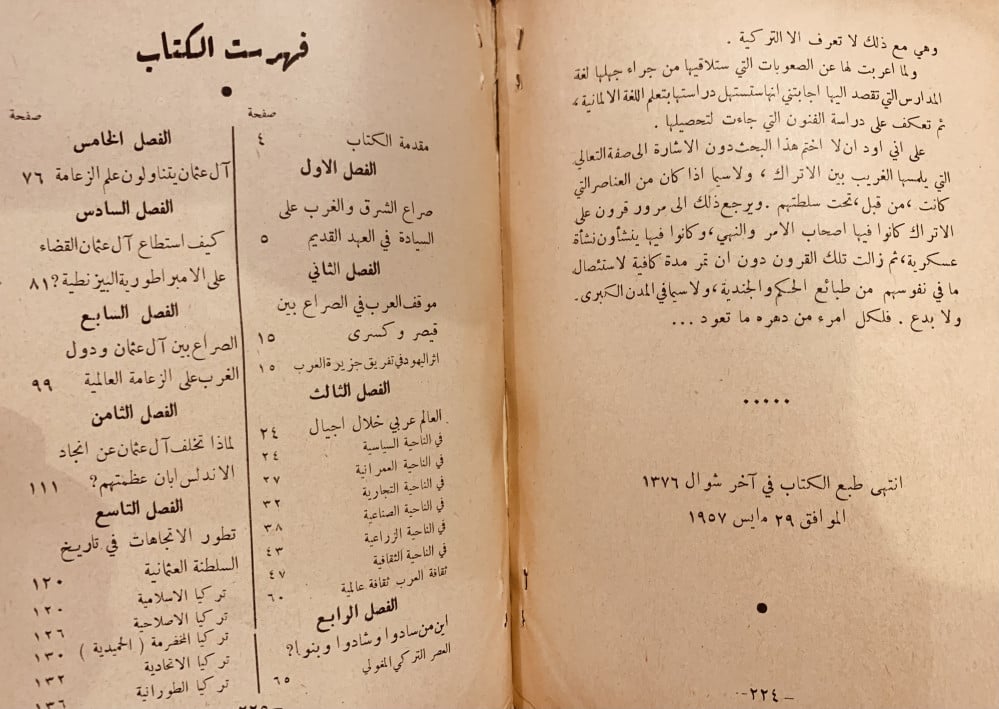 وهي مع ذلك لا تعرف الا التركية .
ولما اعربت لها عن الصعوبات التي ستلاقيها من جراء جهلها لغة
المدارس التي تقصد اليها اجابتني انها ستستهل دراستها بتعلم اللغة الالمانية ،
ثم تعكف على دراسة الفنون التي جاءت لتحصيلها .
على اني اود ان لا اختم هذا البحث دون الاشارة الى صفة التعالي
التي يلمسها الغريب بين الاتراك ، ولا سيما اذا كان من العناصر التي
كانت ، من قبل ، تحت سلطتهم . ويرجع ذلك الى مرور قرون على
الاتراك كانوا فيها اصحاب الامر والنهي ، وكانوا فيها ينشأون نشأة
عسكرية ، ثم زالت تلك القرون دون ان تمر مدة كافية لاستئصال
ما في نفوسهم من طبائع الحكم والجندية ، ولا سيما في المدن الكبرى .
ولا بدع . فلكل امرء من دهره ما تعود ...
.....
انتهى طبع الكتاب في آخر شوال ١٣٧٦
الموافق ٢٩ مايس ١٩٥٧
ـ ٢٢٤ ـ
فهرست الكتاب
صفحة
مقدمة الكتاب ٤
الفصل الاول
صراع الشرق والغرب على
السيادة في العهد القديم ٥
الفصل الثاني
موقف العرب في الصراع بين
قيصر وكسرى ١٥
اثر اليهود في تفريق جزيرة العرب ١٥
الفصل الثالث
العالم عربي خلال اجيال ٢٤
في الناحية السياسية ٢٤
في الناحية العمرانية ٢٧
في الناحية التجارية ٣٢
في الناحية الصناعية ٣٨
في الناحية الزراعية ٤٣
في الناحية الثقافية ٤٧
ثقافة العرب ثقافة عالمية ٦٠
الفصل الرابع
اين من سادوا وشادوا وبنوا ؟
العصر التركي المغولي ٦٥
صفحة
الفصل الخامس
آل عثمان يتناولون علم الزعامة ٧٦
الفصل السادس
كيف استطاع آل عثمان القضاء
على الامبراطورية البيزنطية ؟ ٨١
الفصل السابع
الصراع بين آل عثمان ودول
الغرب على الزعامة العالمية ٩٩
الفصل الثامن
لماذا تخلف آل عثمان عن انجاد
الاندلس ابان عظمتهم ؟ ١١١
الفصل التاسع
تطور الاتجاهات في تاريخ
السلطنة العثمانية ١٢٠
تركيا الاسلامية ١٢٠
تركيا الاصلاحية ١٢٦
تركيا المخضرمة ( الحميدية ) ١٣٠
تركيا الاتحادية ١٣٢
تركيا الطورانية ١٣٦
ـ ٢٢٥ ـ